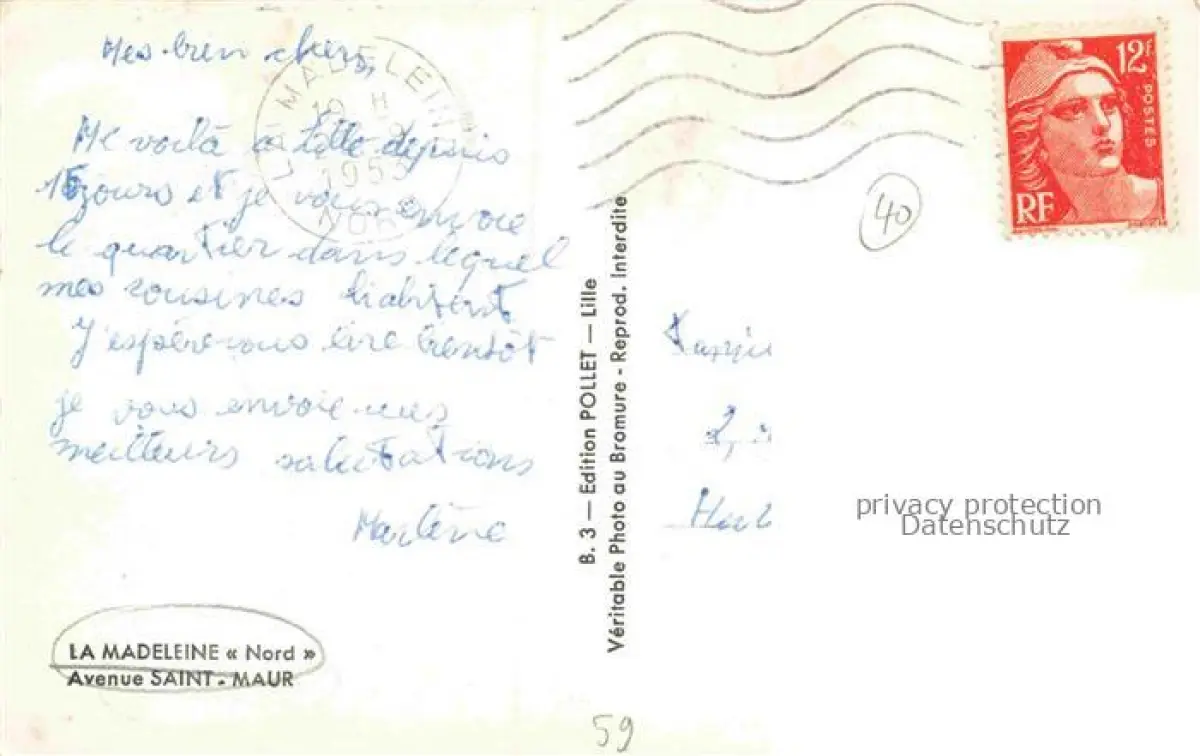 Mes bien chers,
Me voilà à Lille depuis
15 jours et je vous envoie
le quartier dans lequel
mes cousines habitent
J'espère vous lire bientôt
je vous envoie mes
meilleurs salutations
Marlène
LA MADELEINE
19 H
195
NORD
LA MADELEINE « Nord »
Avenue SAINT-MAUR
B. 3 — Edition POLLET — Lille
Véritable Photo au Bromure - Reprod. Interdite
12F
POSTES
RF
40
2,
privacy protection
Datenschutz
59